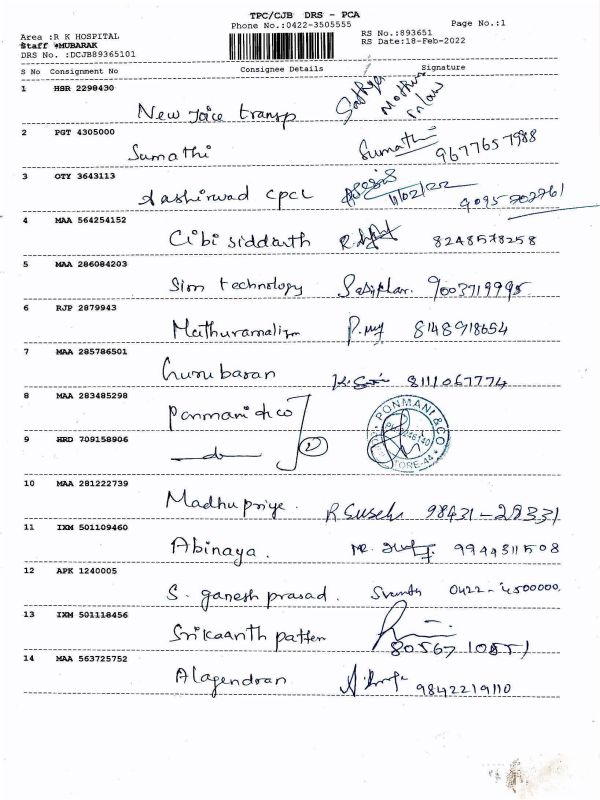 TPC/CJB DRS - PCA
Phone No.:0422-3505555
Page No.:1
Area :R K HOSPITAL
Staff :MUBARAK
DRS No. :DCJB89365101
RS No.:893651
RS Date:18-Feb-2022
S No Consignment No Consignee Details Signature
1 HSR 2298430
New transp Sathya Mother in law
2 PGT 4305000
Sumathi Sumathi 9677657988
3 OTY 3643113
Aashirwad CPCL 11/02/22 9095702761
4 MAA 564254152
Cibi siddarth 8248578258
5 MAA 286084203
Sion technology 9003719995
6 RJP 2879943
8148918654
7 MAA 285786501
Gurubaran 8111067774
8 MAA 283485298
Ponmani & co PONMANI & CO
9 HRD 709158906
2
10 MAA 281222739
Madhupriye. R Susek 98431-28331
11 IXM 501109460
Abinaya. 9944311508
12 APK 1240005
S. ganesh prasad. 0422-4500000.
13 IXM 501118456
Srikaanth patten
14 MAA 563725752
Alagendran 9842219110